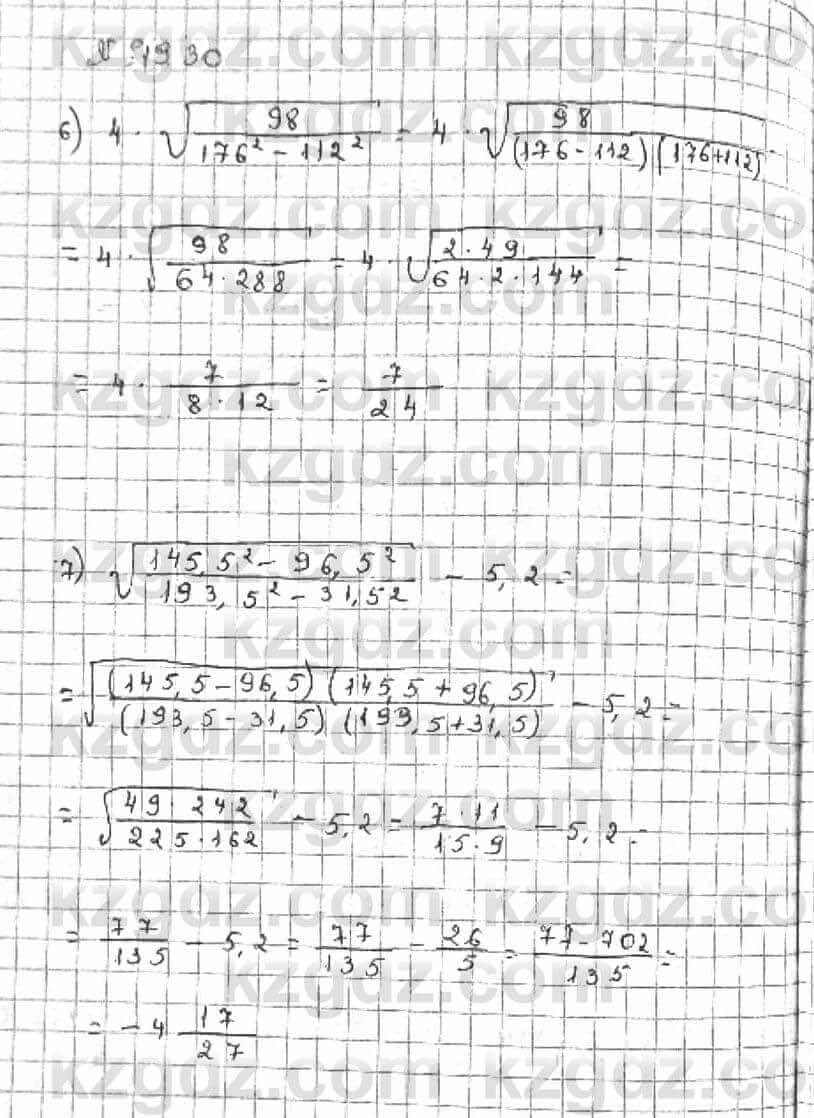 N 1930
6) 4 · √(98 / (176² - 112²)) = 4 · √(98 / ((176 - 112)(176+112)))
= 4 · √(98 / (64 · 288)) = 4 · √((2 · 49) / (64 · 2 · 144)) =
= 4 · 7 / (8 · 12) = 7 / 24
7) √((145,5² - 96,5²) / (193,5² - 31,5²)) - 5,2 =
= √((145,5 - 96,5)(145,5 + 96,5) / ((193,5 - 31,5)(193,5+31,5))) - 5,2 =
= √((49 · 242) / (225 · 162)) - 5,2 = (7 · 11) / (15 · 9) - 5,2 =
= 77 / 135 - 5,2 = 77 / 135 - 26 / 5 = (77 - 702) / 135 =
= - 4 17 / 27
kzgdz.com